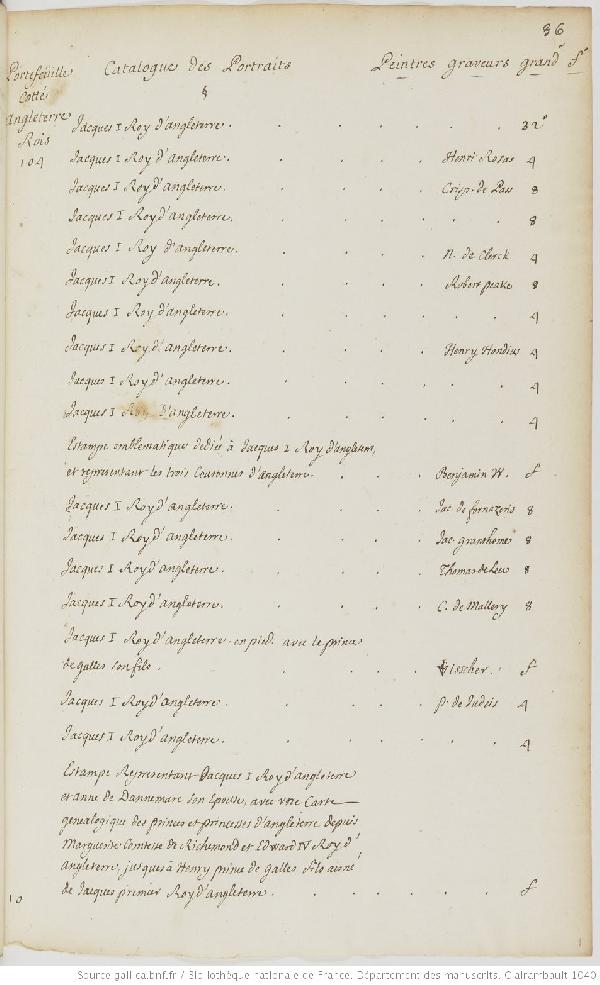 36
Portefeuille Catalogue des Portraits Peintres graveurs grandr fo
Cotté §
angleterre Jacques I Roy d'angleterre. 32o
Rois
104 Jacques I Roy d'angleterre. Henri Rosas 4
Jacques I Roy d'angleterre. Crisp. de Pass 8
Jacques I Roy d'angleterre. 8
Jacques I Roy d'angleterre. N. de Clerck 4
Jacques I Roy d'angleterre. Robert peake 8
Jacques I Roy d'angleterre. 4
Jacques I Roy d'angleterre. Henry Hondius 4
Jacques I Roy d'angleterre. 4
Jacques I Roy d'angleterre. 4
Estampe emblematique dediée à Jacques 2 Roy d'angleterre,
et representant les trois Couronnes d'angleterre. Benjamin W. f
Jacques I Roy d'angleterre. Jac. de fornazeris 8
Jacques I Roy d'angleterre. Jac. granthome 8
Jacques I Roy d'angleterre. Thomas de Leu 8
Jacques I Roy d'angleterre. C. de Mallery 8
Jacques I Roy d'angleterre en pied. avec le prince
de galles son fils. Visscher. f
Jacques I Roy d'angleterre. p. de Iudeis 4
Jacques I Roy d'angleterre. 4
Estampe Representant Jacques I Roy d'angleterre
et anne de Dannemarc son Epouse, avec une Carte
genealogique des princes et princesses d'angleterre depuis
Marguerite Comtesse de Richemond et Edward IV Roy d'
angleterre, jusques à Henry prince de galles fils aisné
10 de Jacques premier Roy d'angleterre. f
Source gallica.bnf.fr / Bibliothèque nationale de France. Département des manuscrits. Clairambault 1040